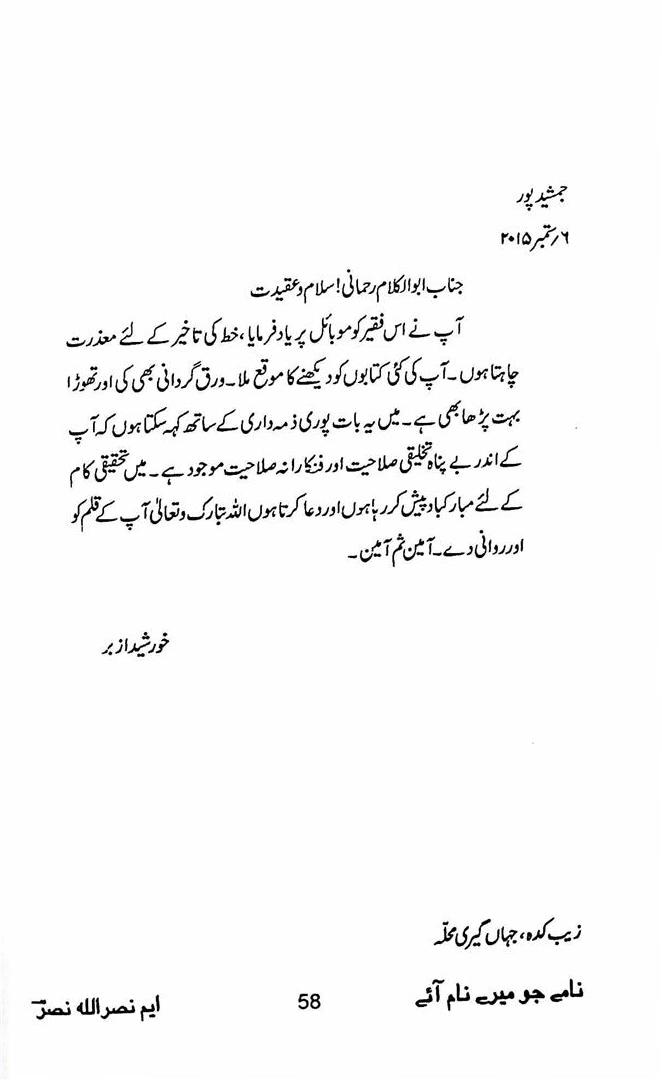 جمشید پور
۶؍ستمبر ۲۰۱۵
جناب ابوالکلام رحمانی! سلام و عقیدت
آپ نے اس فقیر کو موبائل پر یاد فرمایا، خط کی تاخیر کے لئے معذرت
چاہتا ہوں۔ آپ کی کئی کتابوں کو دیکھنے کا موقع ملا۔ ورق گردانی بھی کی اور تھوڑا
بہت پڑھا بھی ہے۔ میں یہ بات پوری ذمہ داری کے ساتھ کہہ سکتا ہوں کہ آپ
کے اندر بے پناہ تخلیقی صلاحیت اور فنکارانہ صلاحیت موجود ہے۔ میں تحقیقی کام
کے لئے مبارکباد پیش کر رہا ہوں اور دعا کرتا ہوں اللہ تبارک وتعالیٰ آپ کے قلم کو
اور روانی دے۔ آمین ثم آمین۔
خورشید ازبر
زیب کدہ، جہاں گیری محلّہ
نامے جو میرے نام آئے 58 ایم نصر اللہ نصرؔ